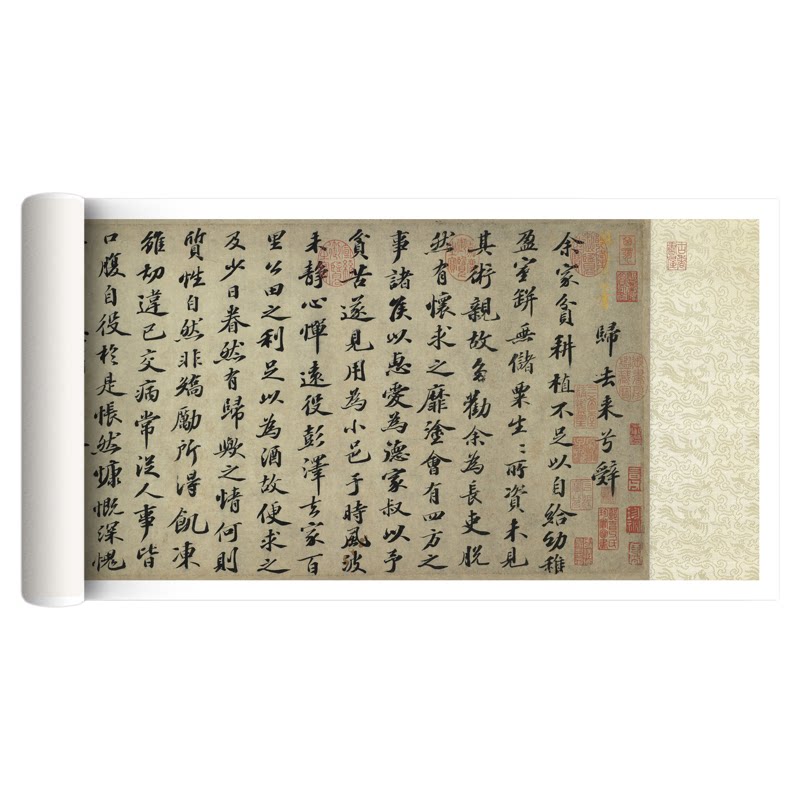 歸去来兮辭
余家貧耕植不足以自給幼稚
盈室缾無儲粟生〻所資未見
其術親故多勸余為長吏脱
然有懷求之靡塗會有四方之
事諸侯以惠愛為德家叔以予
貧苦遂見用為小邑于時風波
未静心憚遠役彭澤去家百
里公田之利足以為酒故便求之
及少日眷然有歸歟之情何則
質性自然非矯勵所得飢凍
雖切違己交病常從人事皆
口腹自役於是悵然慷慨深愧